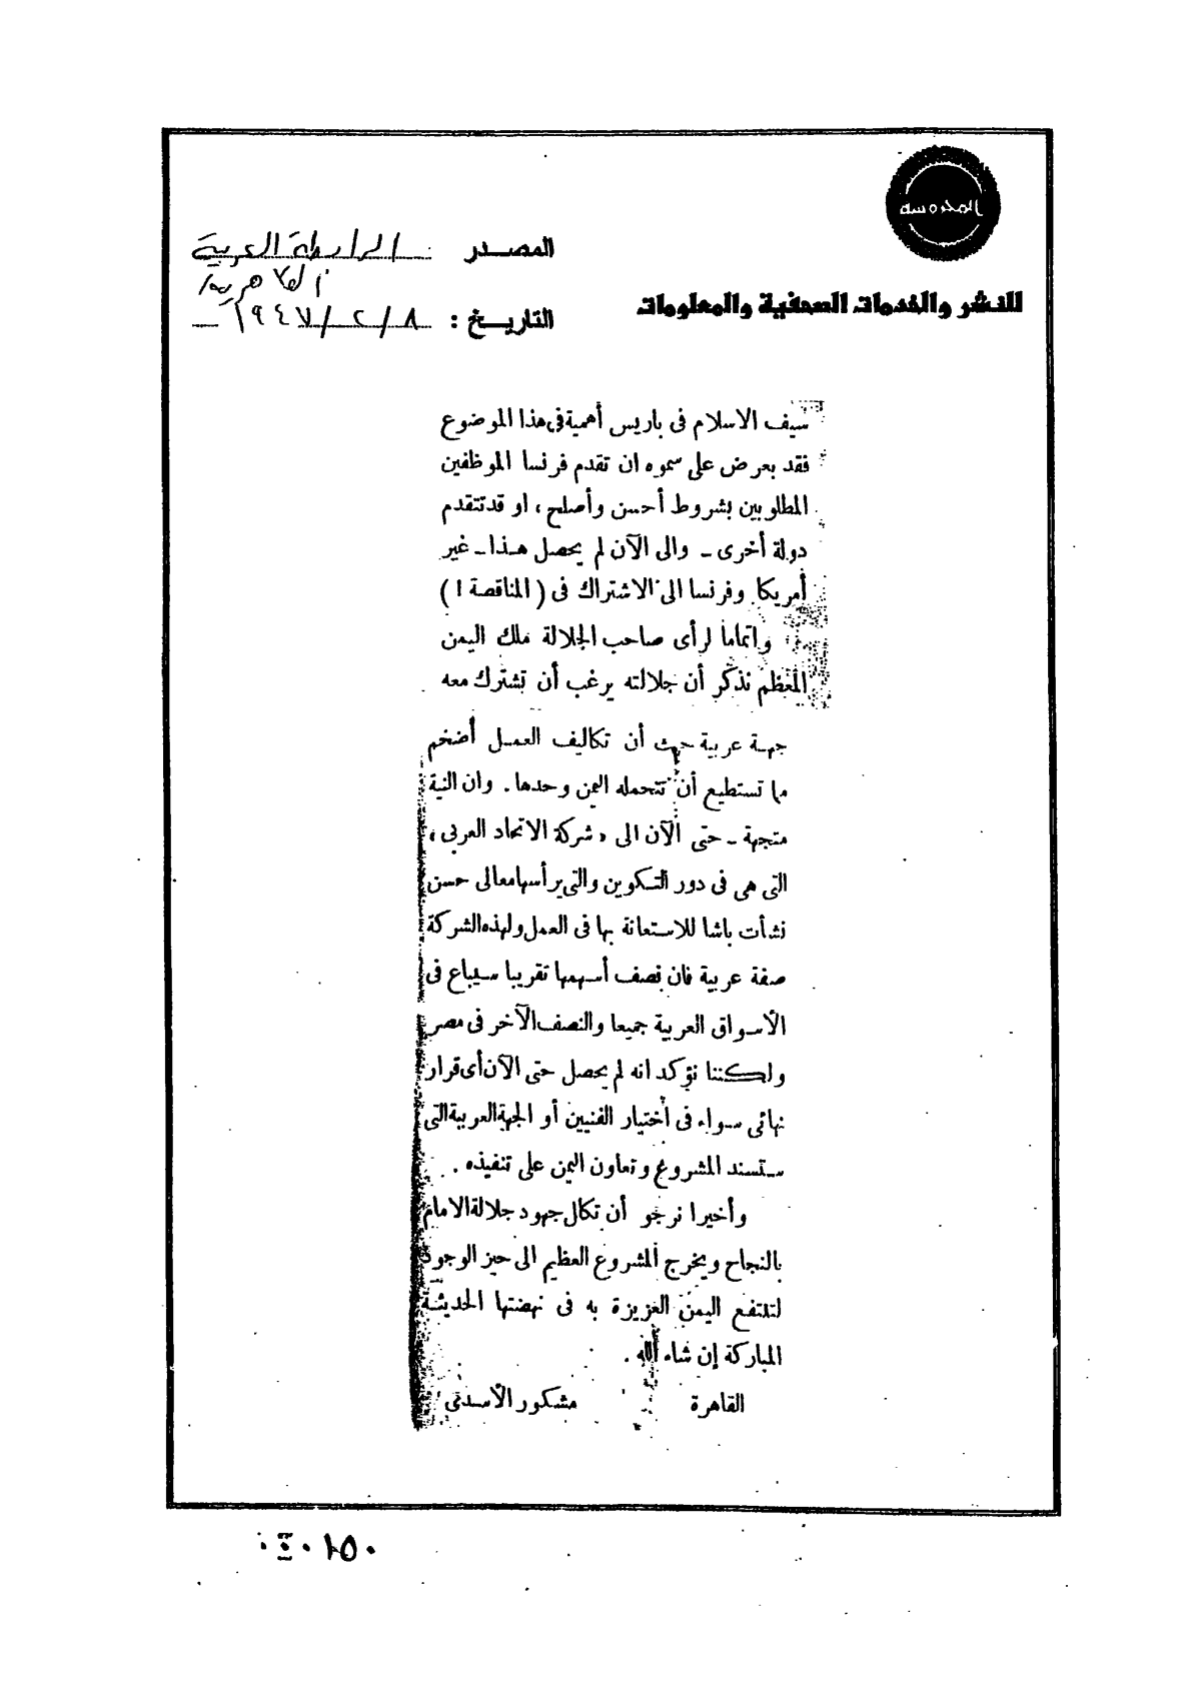 المحروسة
المصدر : الرابطة العربية
القاهرية
للنشر والخدمات الصحفية والمعلومات
التاريخ : ٨/٢/١٩٤٧
سيف الاسلام فى باريس أهمية فى هذا الموضوع
فقد يعرض على سموه ان تقدم فرنسا الموظفين
المطلوبين بشروط أحسن وأصلح ، او قد تتقدم
دولة أخرى ـ والى الآن لم يحصل هذا ـ غير
أمريكا وفرنسا الى الاشتراك فى ( المناقصة ! )
واتماما لرأى صاحب الجلالة ملك اليمن
المعظم نذكر أن جلالته يرغب أن تشترك معه
جهة عربية حيث أن تكاليف العمل أضخم
ما تستطيع أن تتحمله اليمن وحدها . وان النية
متجهة ـ حتى الآن الى « شركة الاتحاد العربى »
التى هى فى دور التكوين والتى يرأسها معالى حسن
نشأت باشا للاستعانة بها فى العمل ولهذه الشركة
صفة عربية فان نصف أسهمها تقريبا سيباع فى
الأسواق العربية جميعا والنصف الآخر فى مصر
ولكننا نؤكد انه لم يحصل حتى الآن أى قرار
نهائى سواء فى أختيار الفنيين أو الجهة العربية التى
ستسند المشروع وتعاون اليمن على تنفيذه .
وأخيرا نرجو أن تكال جهود جلالة الامام
بالنجاح ويخرج المشروع العظيم الى حيز الوجود
لتنتفع اليمن العزيزة به فى نهضتها الحديثة
المباركة إن شاء الله .
القاهرة مشكور الأسدى